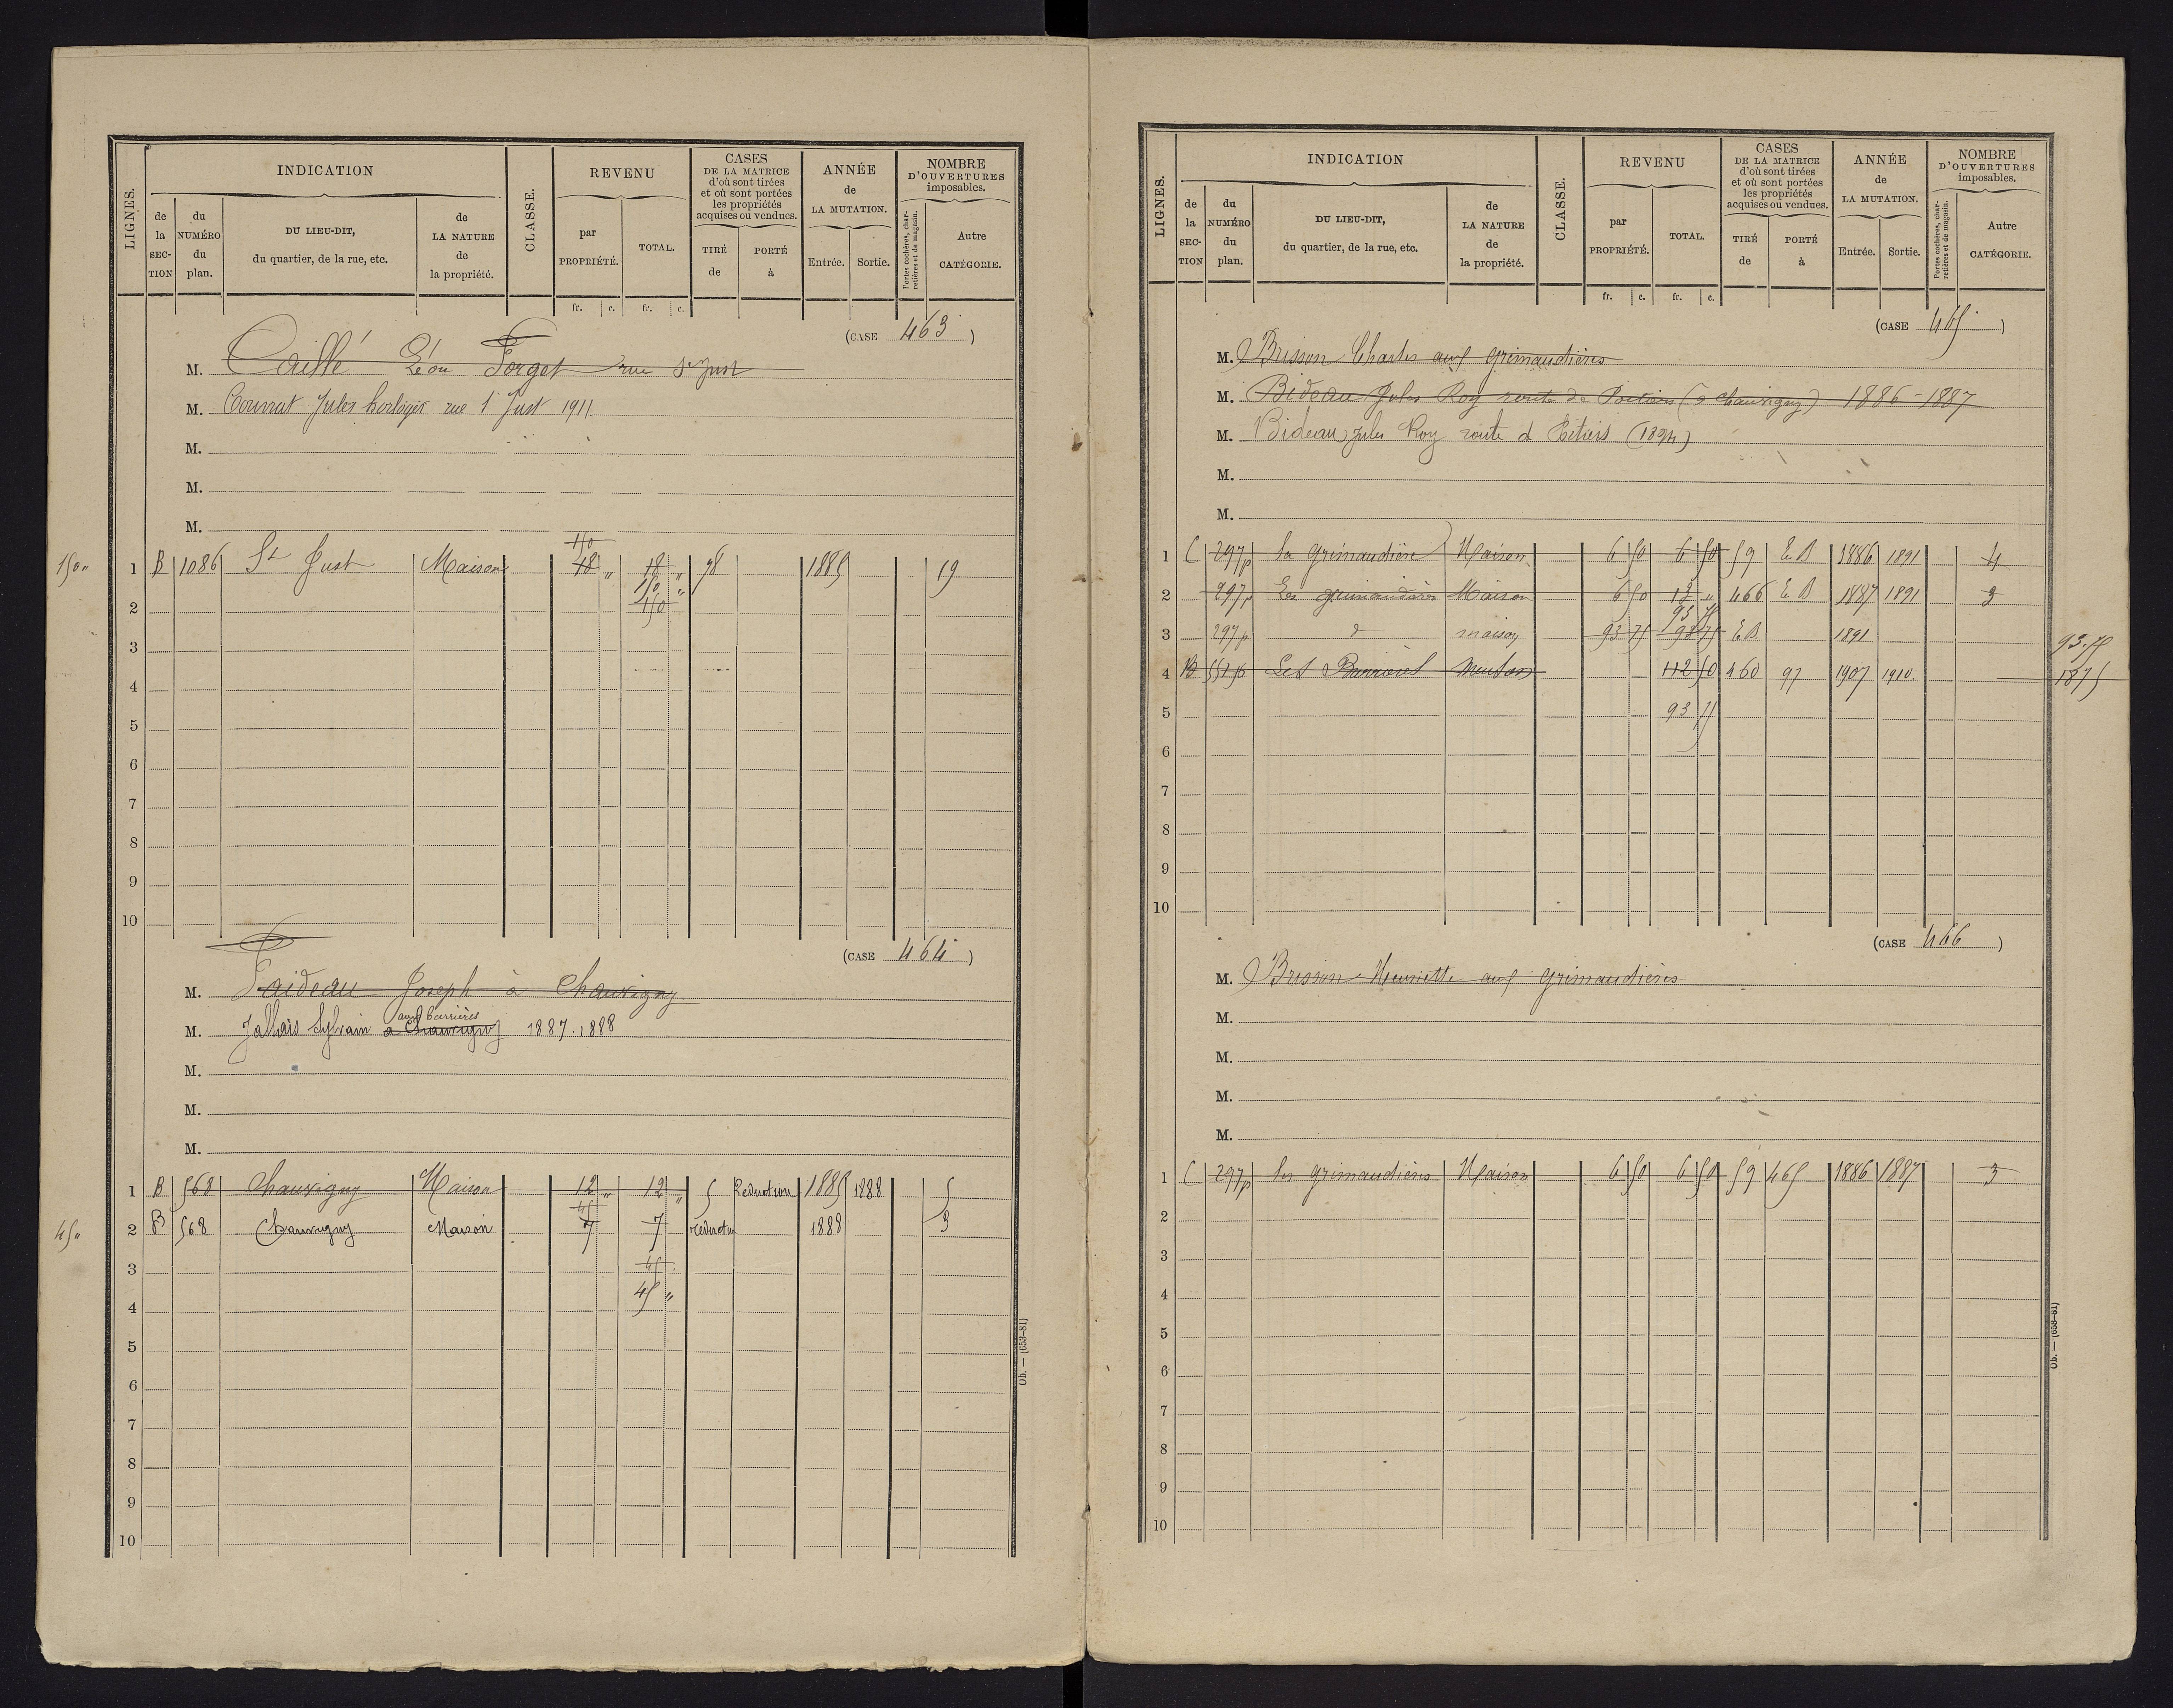 LIGNES.
INDICATION
de la SECTION
du NUMÉRO du plan.
DU LIEU-DIT, du quartier, de la rue, etc.
de LA NATURE de la propriété.
CLASSE.
REVENU
par PROPRIÉTÉ.
TOTAL.
fr. c. fr. c.
CASES DE LA MATRICE d'où sont tirées et où sont portées les propriétés acquises ou vendues.
TIRÉ de
PORTÉ à
ANNÉE de LA MUTATION.
Entrée. Sortie.
NOMBRE D'OUVERTURES imposables.
Portes cochères, charretières et de magasin.
Autre CATÉGORIE.
(CASE 463)
M. Caillé Léon Forget rue St Just
M. Courrat Jules horloger rue St Just 1911.
M.
M.
M.
150
150 " 1 B 1086 St Just Maison 18 " 18 " 98 1885 19
150 "
2 150
3
4
5
6
7
8
9
10
(CASE 464)
M. Faideau Joseph à Chauvigny
aux barrières
M. Jallais Sylvain à Chauvigny 1887.1888
M.
M.
M.
1 B 568 Chauvigny Maison 12 " 12 " 5 Reduction 1885 1888 5
45
45 " 2 B 568 Chauvigny Maison 7 7 reduction 1888 3
3 45
4 45 "
5
6
7
8
9
10
Ob. — (653-81)
LIGNES.
INDICATION
de la SECTION
du NUMÉRO du plan.
DU LIEU-DIT, du quartier, de la rue, etc.
de LA NATURE de la propriété.
CLASSE.
REVENU
par PROPRIÉTÉ.
TOTAL.
fr. c. fr. c.
CASES DE LA MATRICE d'où sont tirées et où sont portées les propriétés acquises ou vendues.
TIRÉ de
PORTÉ à
ANNÉE de LA MUTATION.
Entrée. Sortie.
NOMBRE D'OUVERTURES imposables.
Portes cochères, charretières et de magasin.
Autre CATÉGORIE.
(CASE 465)
M. Brisson Charles aux Grimaudières
M. Bideau Jules Roy route de Poitiers (à chauvigny) 1886-1887
M. Bideau Jules Roy route d Poitiers (1894)
M.
M.
1 C 297p la Grimaudière Maison 6 50 6 50 59 E B 1886 1891 4
2 297p Les grimaudières Maison 6 50 13 " 466 E B 1887 1891 3
93 75
3 297p d maison 93 75 93 75 E B. 1891 93.75
4 B 551p Les Barrières maison 112 50 460 97 1907 1910. 1875
5 93 75
6
7
8
9
10
(CASE 466)
M. Brisson Henriette aux Grimaudières
M.
M.
M.
M.
1 C 297p les grimaudières Maison 6 50 6 50 59 465 1886 1887 3
2
3
4
5
6
7
8
9
10
Ob. — (653-81)